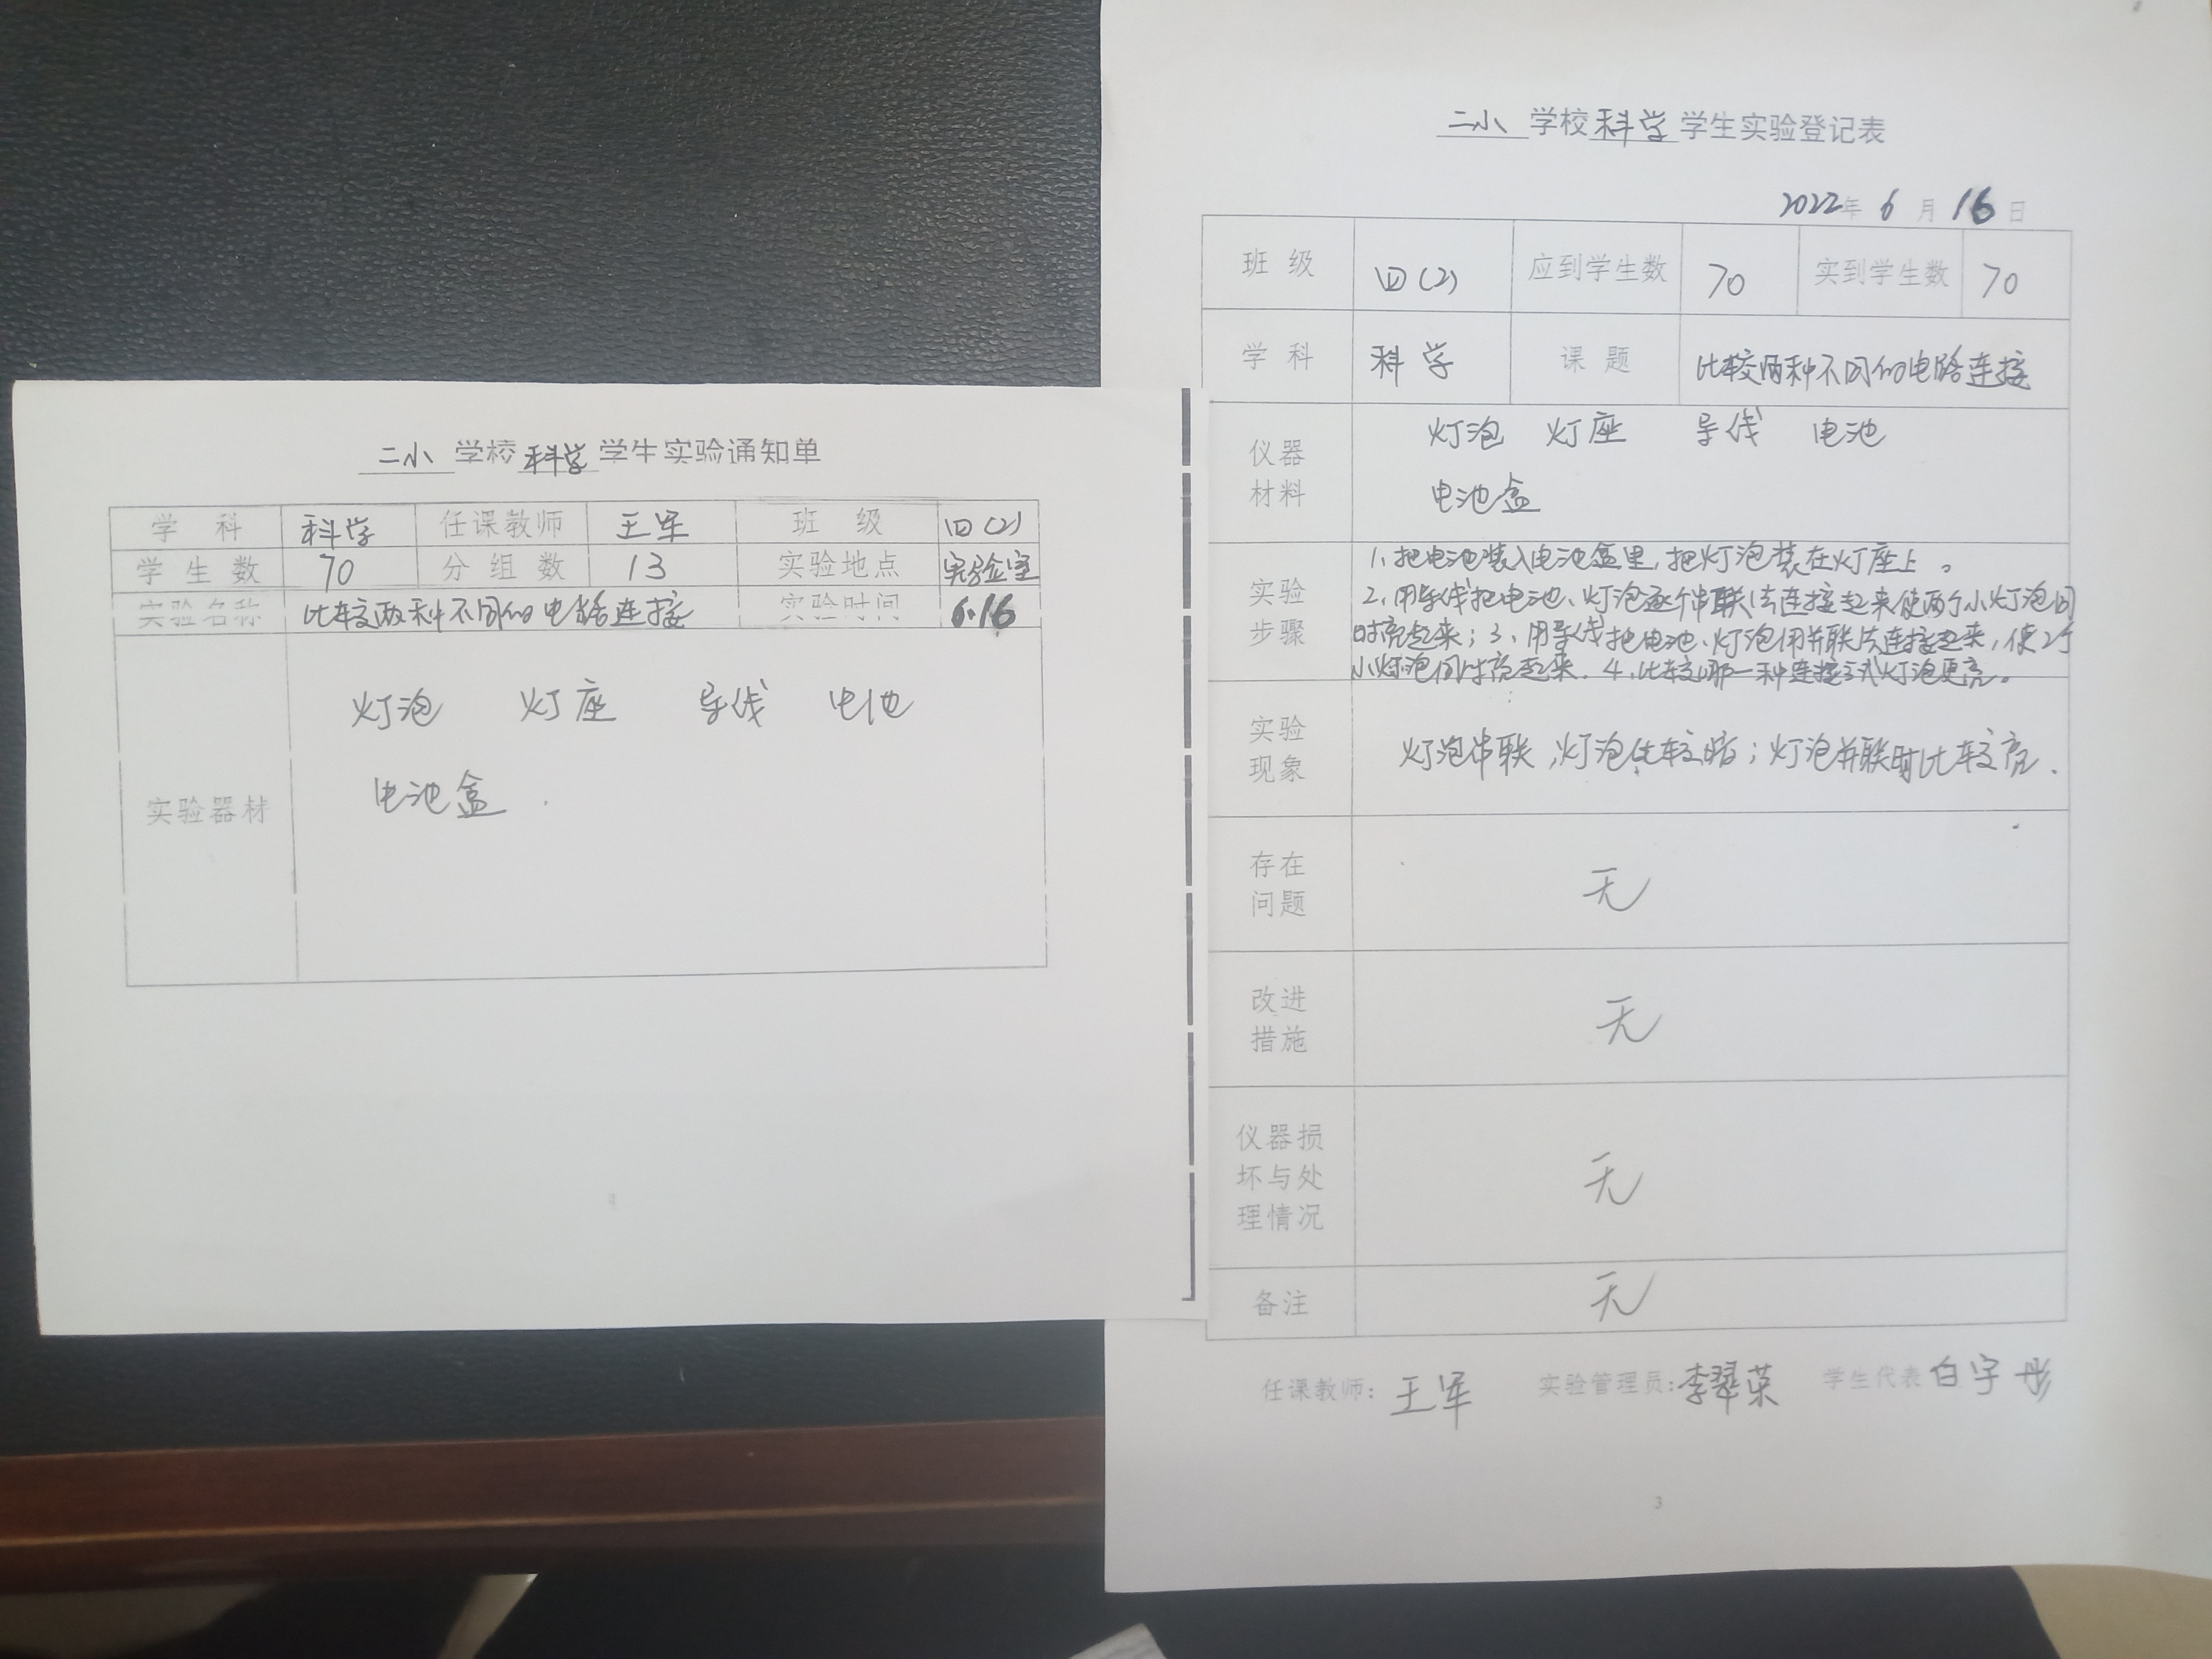 二小 学校 科学 学生实验通知单
学 科 科学 任课教师 王军 班 级 四(2)
学 生 数 70 分 组 数 13 实验地点 实验室
实验名称 比较两种不同的电路连接 实验时间 6.16
灯泡 灯座 导线 电池
电池盒
实验器材
二小 学校 科学 学生实验登记表
2022年 6 月 16 日
班 级 四(2) 应到学生数 70 实到学生数 70
学 科 科学 课 题 比较两种不同的电路连接
仪器
材料
灯泡 灯座 导线 电池
电池盒
实验
步骤
1、把电池装入电池盒里,把灯泡装在灯座上。
2、用导线把电池、灯泡逐个串联法连接起来使两个小灯泡同
时亮起来;3、用导线把电池、灯泡用并联法连接起来,使2个
小灯泡同时亮起来.4、比较哪一种连接方式灯泡更亮。
实验
现象
灯泡串联,灯泡比较暗;灯泡并联时比较亮.
存在
问题
无
改进
措施
无
仪器损
坏与处
理情况
无
备注 无
任课教师: 王军 实验管理员:李翠荣 学生代表 白宇彤
3